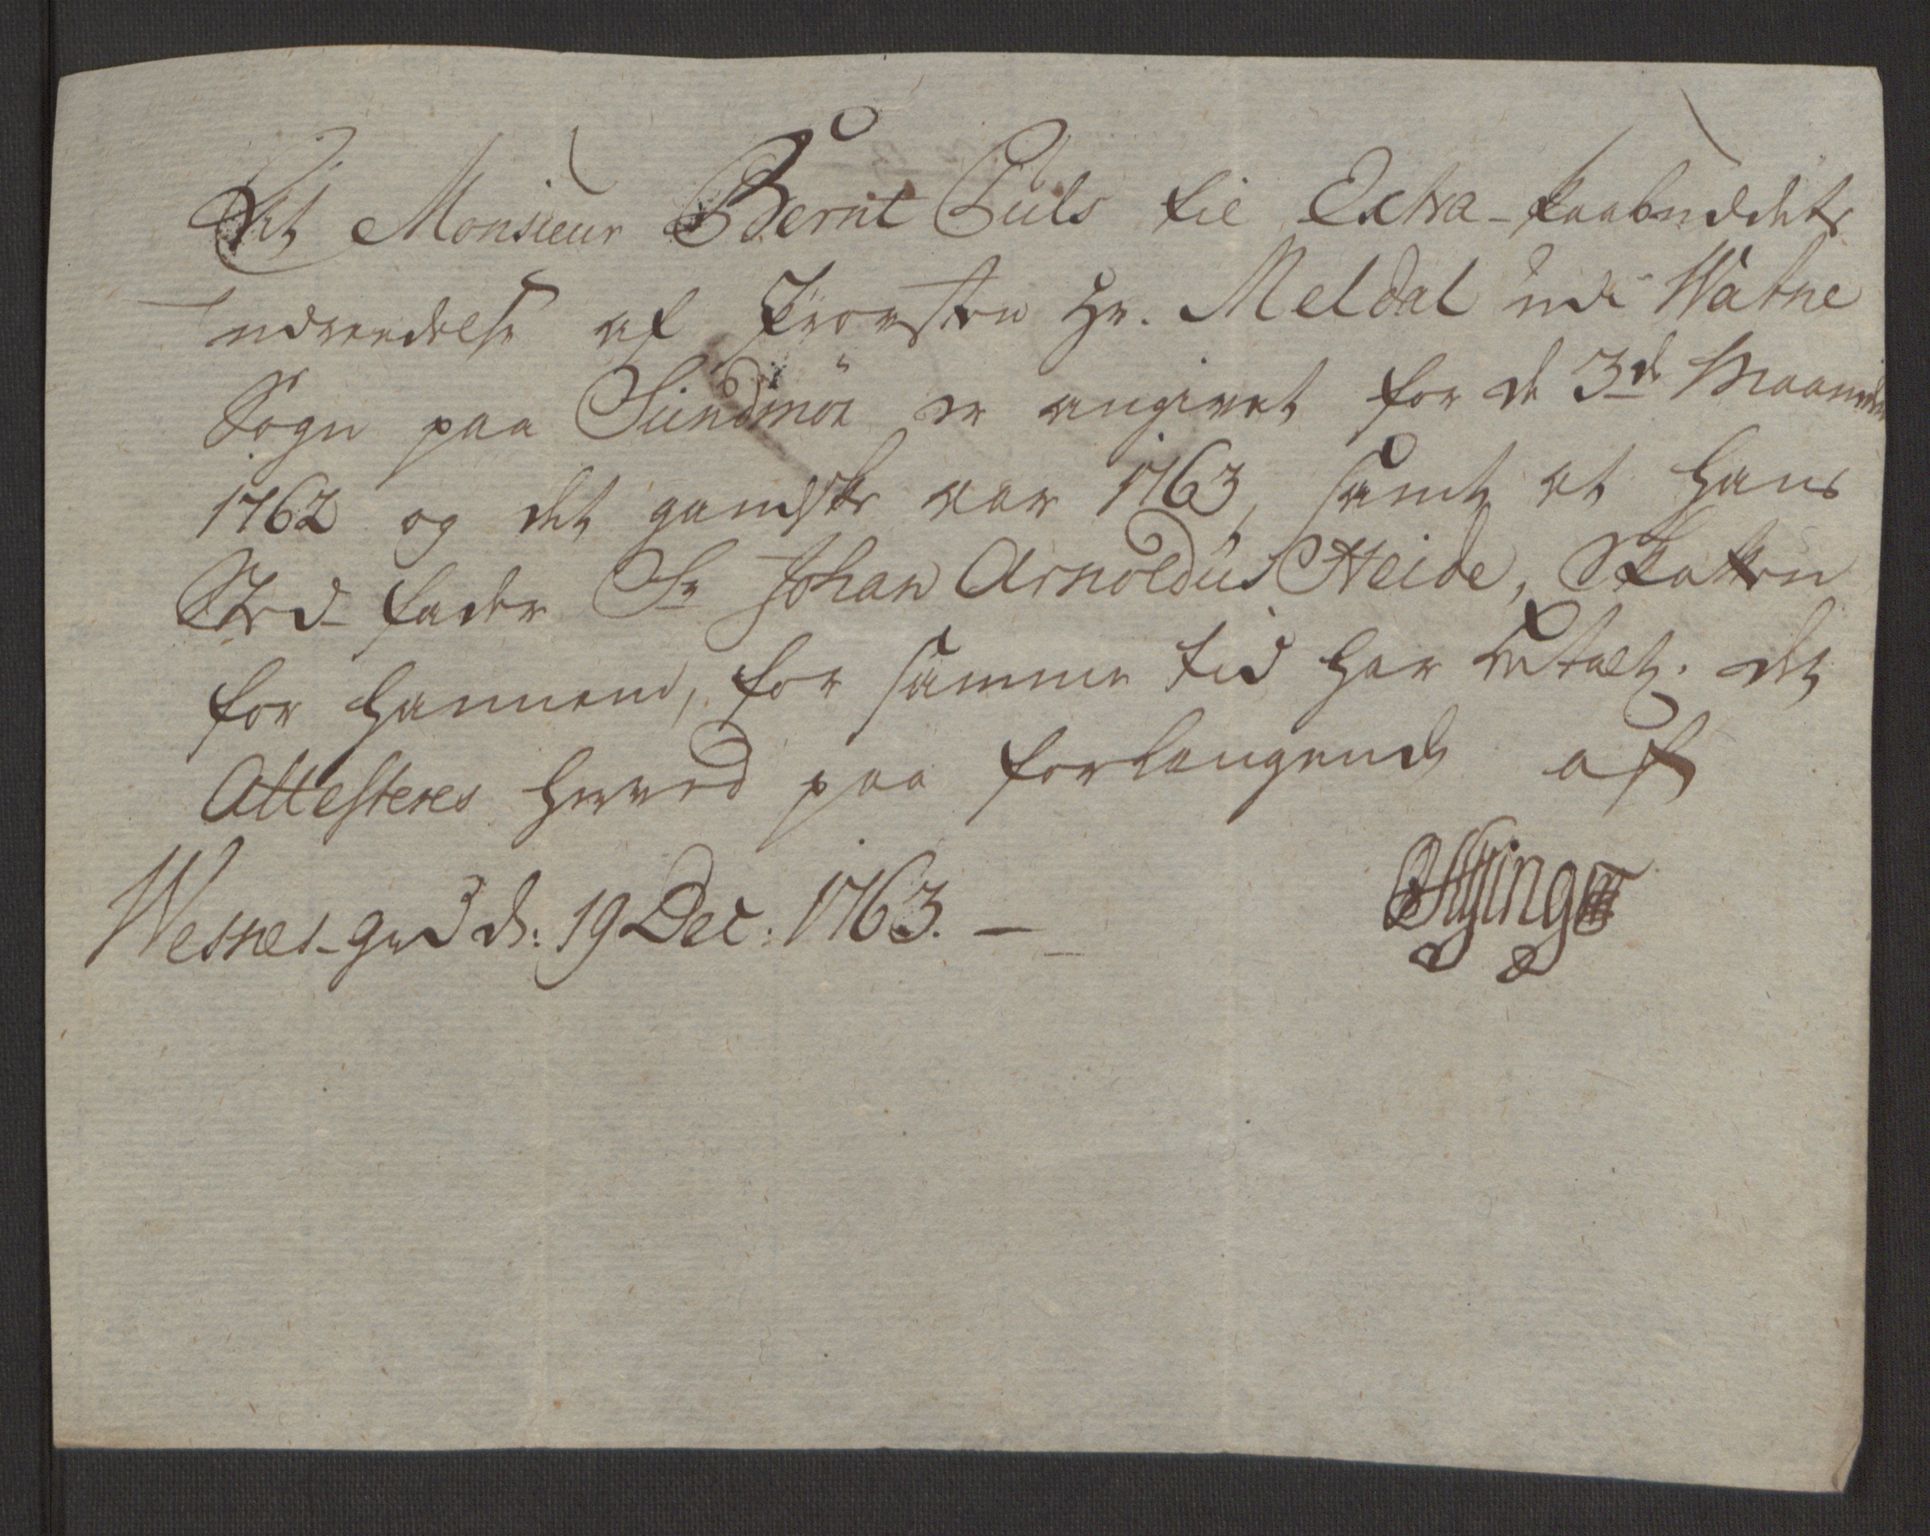 At Monsieur Bernt Buls til Extra-Paabuddets
udreedelse af Provsten Hr. Meldal udi Watne
Sogn paa Sundmör er angivet for de 3de Maaneder
1762 og det gandske aar 1763, samt at hans
Sted-fader Sr Johan Arnoldus Heide, Skatten
for hannem, for samme tid har betalt. det
Attesteres herved paa forlangende af
Wesnes-grd d: 19 Dec: 1763. —